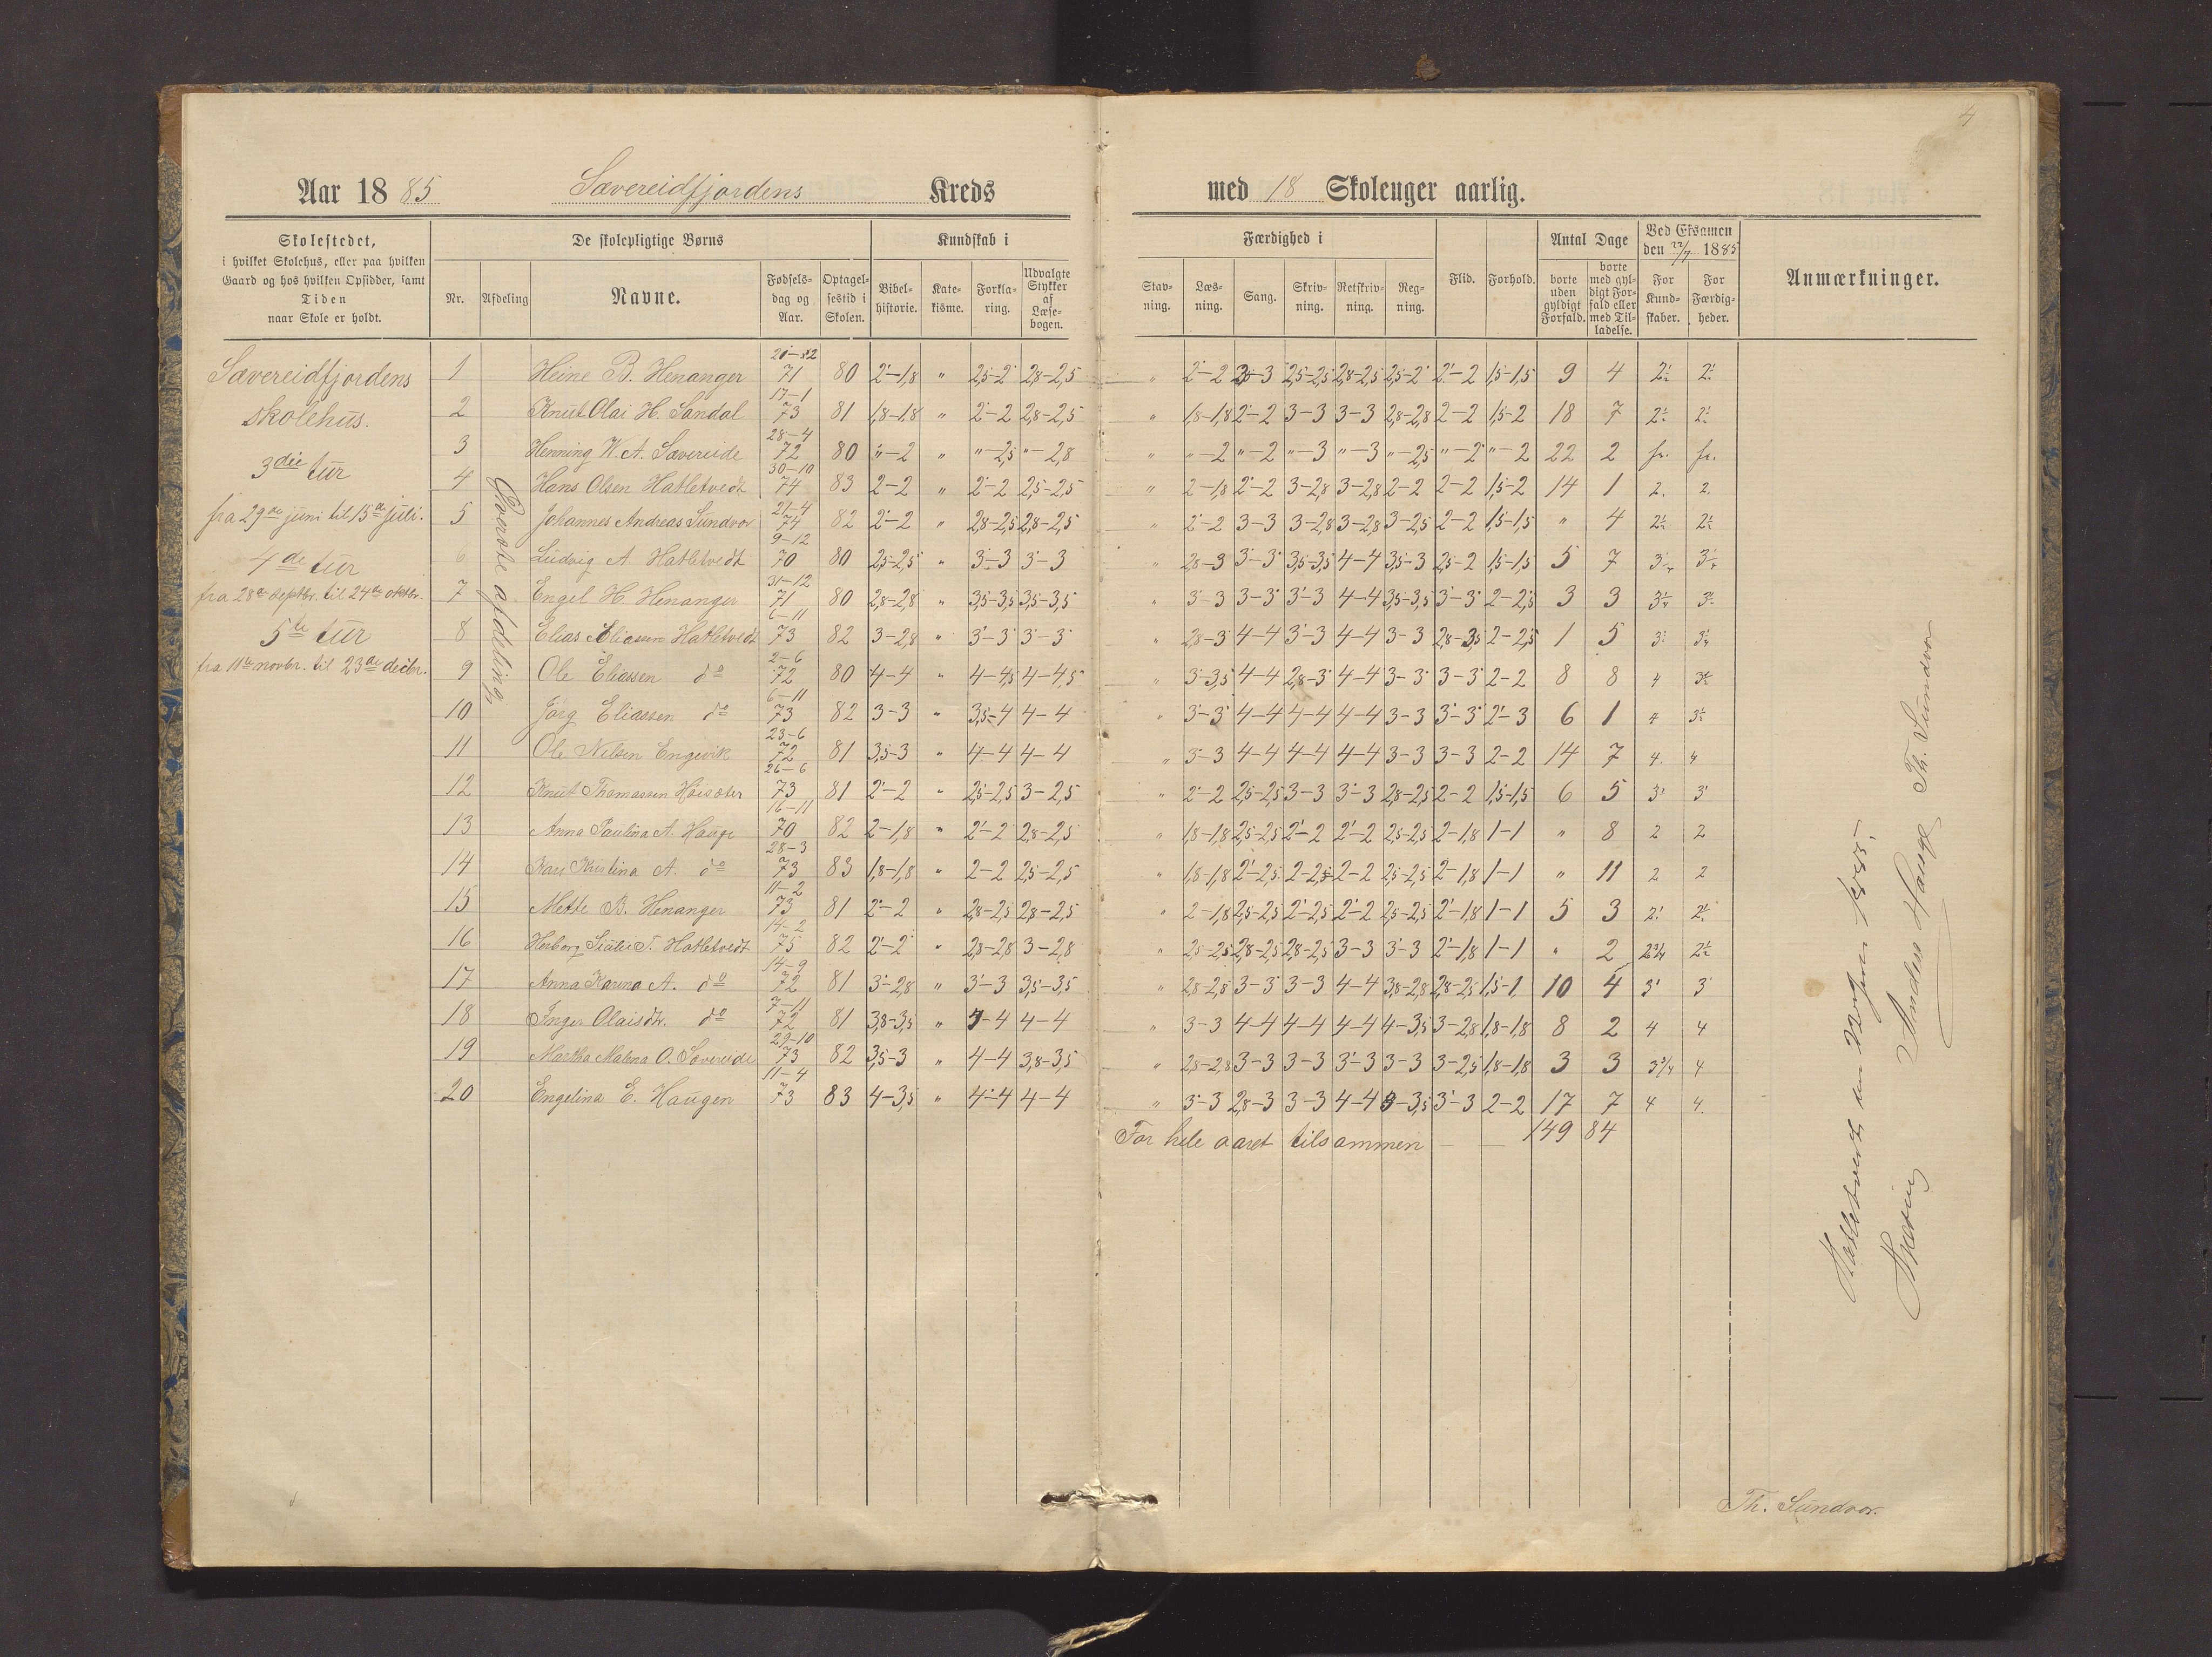 4
Aar 1885 Sævereidfjordens Kreds
med 18 Skoleuger aarlig.
Skolestedet,
i hvilket Skolehus, eller paa hvilken
Gaard og hos hvilken Opsidder, samt
Tiden
naar Skole er holdt.
De skolepligtige Børns
Nr. Afdeling Navne. Fødselsdag og Aar. Optagelsestid i Skolen.
Kundskab i
Bibelhistorie. Katekisme. Forklaring. Udvalgte Stykker af Læsebogen.
Færdighed i
Stavning. Læsning. Sang. Skrivning. Retskrivning. Regning. Flid. Forhold.
Antal Dage
borte uden gyldigt Forfald. borte med gyldigt Forfald eller med Tilladelse.
Ved Eksamen
den 22/7 1885
For Kundskaber. For Færdigheder.
Anmærkninger.
Sævereidfjordens
skolehus.
3die tur
fra 29de juni til 15de juli.
4de tur
fra 28de septbr. til 24de oktbr.
5te tur
fra 11te novbr. til 23de decbr.
Øverste afdeling
1 Heine B. Henanger 71 80 2-1,8 " 2,5-2 2,8-2,5 " 2-2 3-3 2,5-2,5 2,8-2,5 2,5-2 2-2 1,5-1,5 9 4
2 Knut Olai H. Sandal 17-1 73 81 1,8-1,8 " 2-2 2,8-2,5 " 1,8-1,8 2-2 3-3 3-3 2,8-2,8 2-2 1,5-2 18 7
3 Henning W. A. Sævereide 28-4 72 80 "-2 " "-2,5 "-2,8 " "-2 "-2 "-3 "-3 "-2,5 "-2 "-2 22 2 fr. fr.
4 Hans Olsen Hatletvedt 30-10 74 83 2-2 " 2-2 2,5-2,5 " 2-1,8 2-2 3-2,8 3-2,8 2-2 2-2 1,5-2 14 1 2. 2.
5 Johannes Andreas Sundvor 21-4 74 82 2-2 " 2,8-2,5 2,8-2,5 " 2-2 3-3 3-2,8 3-2,8 3-2,5 2-2 1,5-1,5 " 4
6 Ludvig A. Hatletvedt 9-12 70 80 2,5-2,5 " 3-3 3-3 " 2,8-3 3-3 3,5-3,5 4-4 3,5-3 2,5-2 1,5-1,5 5 7
7 Engel H. Henanger 31-12 71 80 2,8-2,8 " 3,5-3,5 3,5-3,5 " 3-3 3-3 3-3 4-4 3,5-3,5 3-3 2-2,5 3 3
8 Elias Eliassen Hatletvedt 6-11 73 82 3-2,8 " 3-3 3-3 " 2,8-3 4-4 3-3 4-4 3-3 2,8-3,5 2-2,5 1 5
9 Ole Eliassen do 2-6 72 80 4-4 " 4-4,5 4-4,5 " 3-3,5 4-4 2,8-3 4-4 3-3 3-3 2-2 8 8 4
10 Jørg Eliassen do 6-11 73 82 3-3 " 3,5-4 4-4 " 3-3 4-4 4-4 4-4 3-3 3-3 2-3 6 1 4
11 Ole Nilsen Engevik 23-6 72 81 3,5-3 " 4-4 4-4 " 3-3 4-4 4-4 4-4 3-3 3-3 2-2 14 7 4. 4
12 Knut Thomassen 26-6 73 81 2-2 " 2,5-2,5 3-2,5 " 2-2 2,5-2,5 3-3 3-3 2,8-2,5 2-2 1,5-1,5 6 5 3 3
13 Anna Paulina A. Hauge 16-11 70 82 2-1,8 " 2-2 2,8-2,5 " 1,8-1,8 2,5-2,5 2-2 2-2 2,5-2,5 2-1,8 1-1 " 8 2 2
14 Kari Kristina A. do 28-3 73 83 1,8-1,8 " 2-2 2,5-2,5 " 1,8-1,8 2-2,5 2-2,5 2-2 2,5-2,5 2-1,8 1-1 " 11 2 2
15 Mette B. Henanger 11-2 73 81 2-2 " 2,8-2,5 2,8-2,5 " 2-1,8 2,5-2,5 2-2,5 2-2 2,5-2,5 2-1,8 1-1 5 3
16 Herborg T. Hatletvedt 14-2 75 82 2-2 " 2,8-2,8 3-2,8 " 2,5-2,5 2,8-2,5 2,8-2,5 3-3 3-3 2-1,8 1-1 " 2
17 Anna Karina A. do 14-9 72 81 3-2,8 " 3-3 3,5-3,5 " 2,8-2,8 3-3 3-3 4-4 3,8-2,8 2,8-2,5 1,5-1 10 4 3 3
18 Inger Olaisdtr. do 7-11 72 81 3,8-3,5 " 4-4 4-4 " 3-3 4-4 4-4 4-4 4-3,5 3-2,8 1,8-1,8 8 2 4 4
19 Martha Malena O. Sævereide 29-10 73 82 3,5-3 " 4-4 3,8-3,5 " 2,8-2,8 3-3 3-3 3-3 3-3 3-2,5 1,8-1,8 3 3 3 3/4 4
20 Engelina E. Haugen 11-4 73 83 4-3,5 " 4-4 4-4 " 3-3 2,8-3 3-3 4-4 3-3,5 3-3 2-2 17 7 4 4.
For hele aaret tilsammen — — 149 84
Hatletvedt den 22 1885.
Anders Hauge Th. Sundvor
Th. Sundvor.